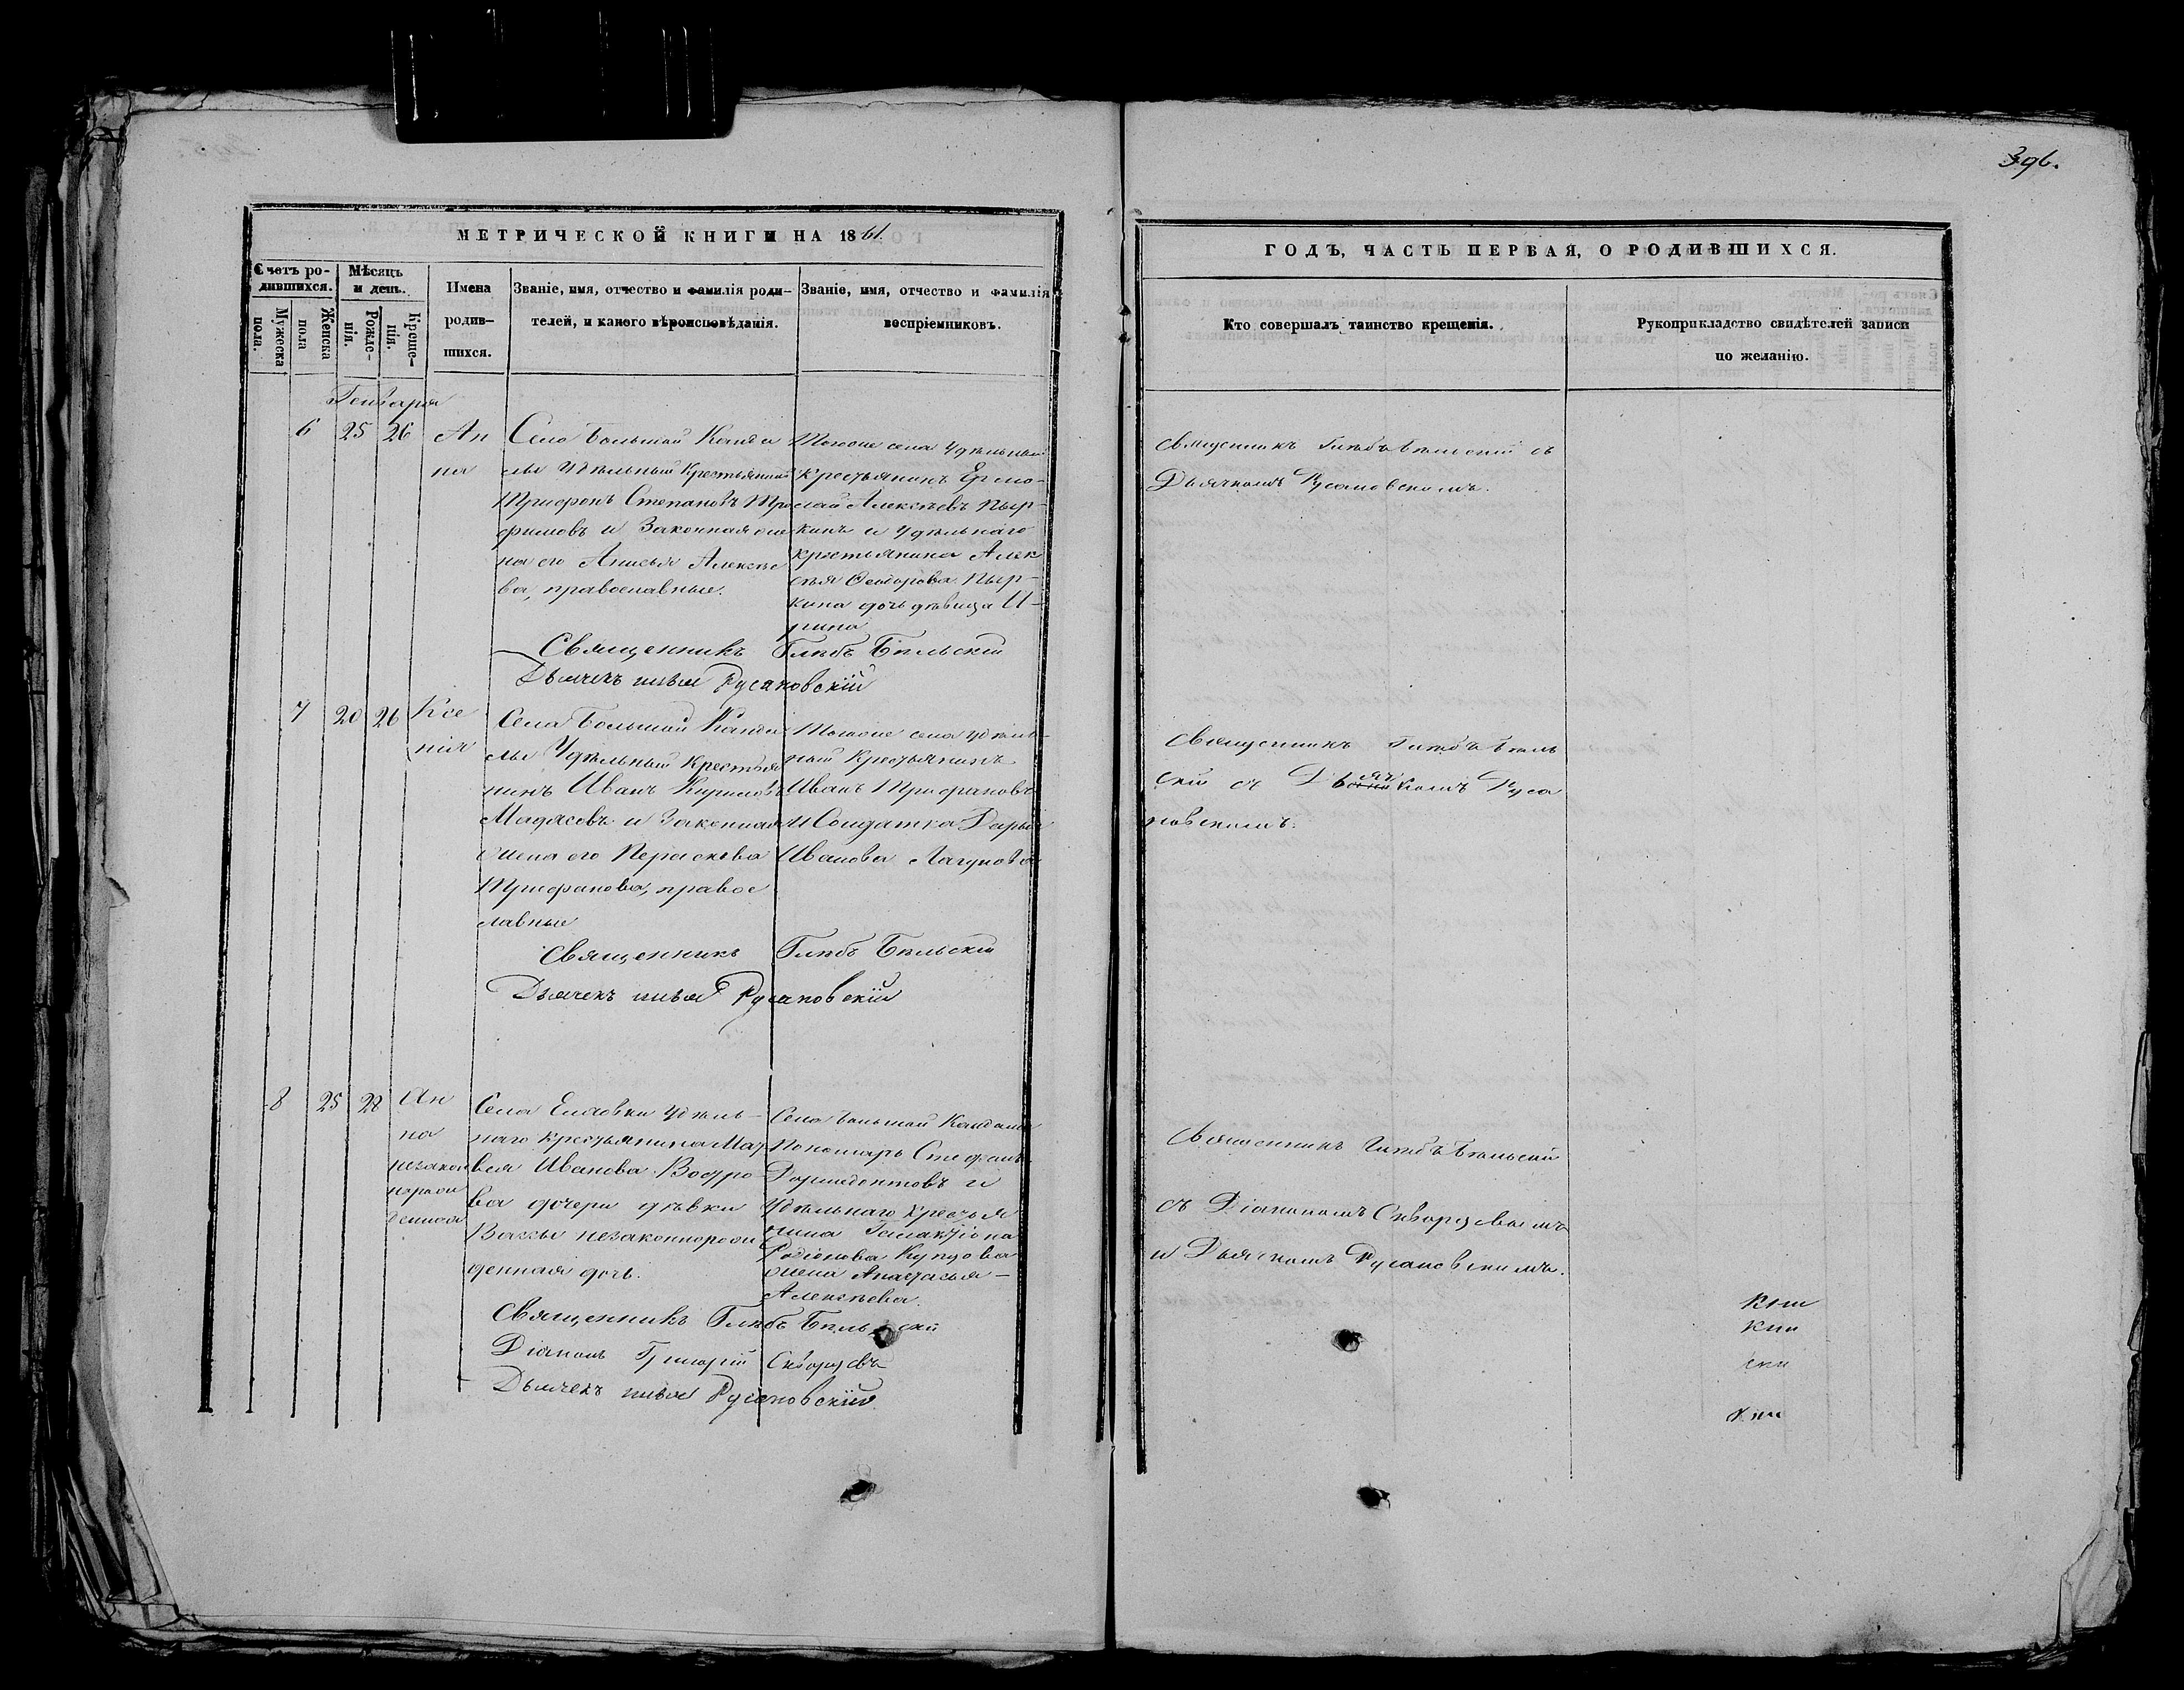 396.
МЕТРИЧЕСКОЙ КНИГИ НА 1861.
Счетъ ро-
дившихся.
Мѣсяцъ
и день.
Мужеска
пола.
Женска
пола
Рожде-
нія.
Креще-
нія.
Имена
родив-
шихся.
Званіе, имя, отчество и фамилія роди-
телей, и какого вѣроисповѣданія.
Званіе, имя, отчество и фамилія
воспріемниковъ.
ГОДЪ, ЧАСТЬ ПЕРВАЯ, О РОДИВШИХСЯ.
Кто совершалъ таинство крещенія.
Рукоприкладство свидѣтелей записи
по желанію.
Генваря
6 25 26
Ан
на
Села Большой Канда
лы Удѣльный Крестьянинъ
Трифонъ Степановъ Тро
фимовъ и Законная же
на его Анисья Алексѣе
ва, православные.
Тогоже села Удѣльный
крестьянинъ Ермо-
лай Алексѣевъ Пыр-
кинъ и удѣльнаго
крестьянина Алек
сѣя Ѳеодорова Пыр-
кина дочь дѣвица И-
рина
Священникъ Глѣбъ Бѣльскій съ
Дьячкомъ Русановскимъ.
Священникъ Глѣбъ Бѣльскій
Дьячекъ Русановскій
7 20 26
Ксе
нія
Села Большой Канда
лы Удѣльный Крестья
нинъ Иванъ Кириловъ
и Законная
жена его Параскева
Трифонова, правос
лавные
Тогоже села удѣль-
ный Крестьянинъ
Иванъ Трифоновъ
и Солдатка Дарья
Иванова Лагунова
Священникъ Глѣбъ Бѣль
скій съ Дьячкомъ Руса
новскимъ.
Священникъ Глѣбъ Бѣльскій
Дьячекъ Русановскій
8 25 28
Ан
на
незакон
норож
денная
Села Еласовки удѣль-
наго крестьянина Мат
вея Иванова
ва дочери дѣвки
Вассы незаконнорож
денная дочь.
Села Большой Кандалы
Пономарь Стефанъ
Дормедонтовъ и
Удѣльнаго крестья
нина Галактіона
Родіонова
жена Анастасья
Алексѣева.
Священникъ Глѣбъ Бѣльскій
съ Діакономъ Скворцовымъ
и Дьячкомъ Русановскимъ.
Священникъ Глѣбъ Бѣльскій
Діаконъ Григорій Скворцовъ
Дьячекъ Русановскій.